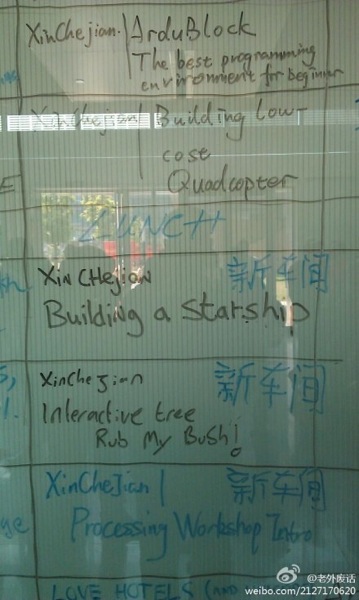 XinCheJian. ArduBlock
The best programming
environment for beginner
XinCheJian Building low-
cost
Quadcopter
LUNCH
XinCHeJian 新车间
Building a Starship
XinChejian 新车间
Interactive tree
Rub My Bush!
XinCheJian 新车间
Processing Workshop Intro
LOVE HOTELS (AND
@老外废话
weibo.com/2127170620